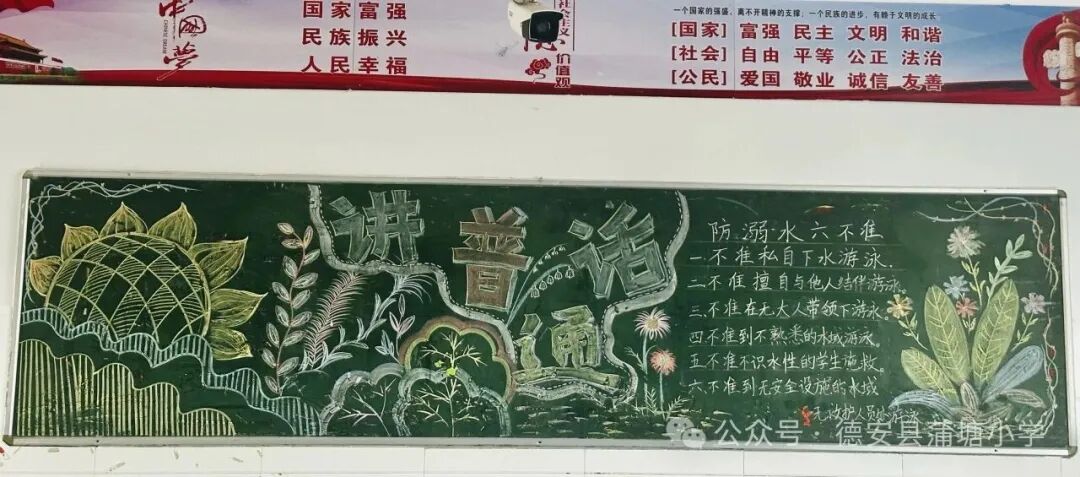 中国梦
国家富强
民族振兴
人民幸福
社会主义
价值观
一个国家的强盛，离不开精神的支撑；一个民族的进步，有赖于文明的成长
[国家] 富强 民主 文明 和谐
[社会] 自由 平等 公正 法治
[公民] 爱国 敬业 诚信 友善
讲普通话
防溺水六不准
一不准私自下水游泳.
二不准擅自与他人结伴游泳
三.不准在无大人带领下游泳
四不准到不熟悉的水域游泳
五不准不识水性的学生施救。
六不准到无安全设施的水域
无救护人员 游泳
公众号·德安县蒲塘小学